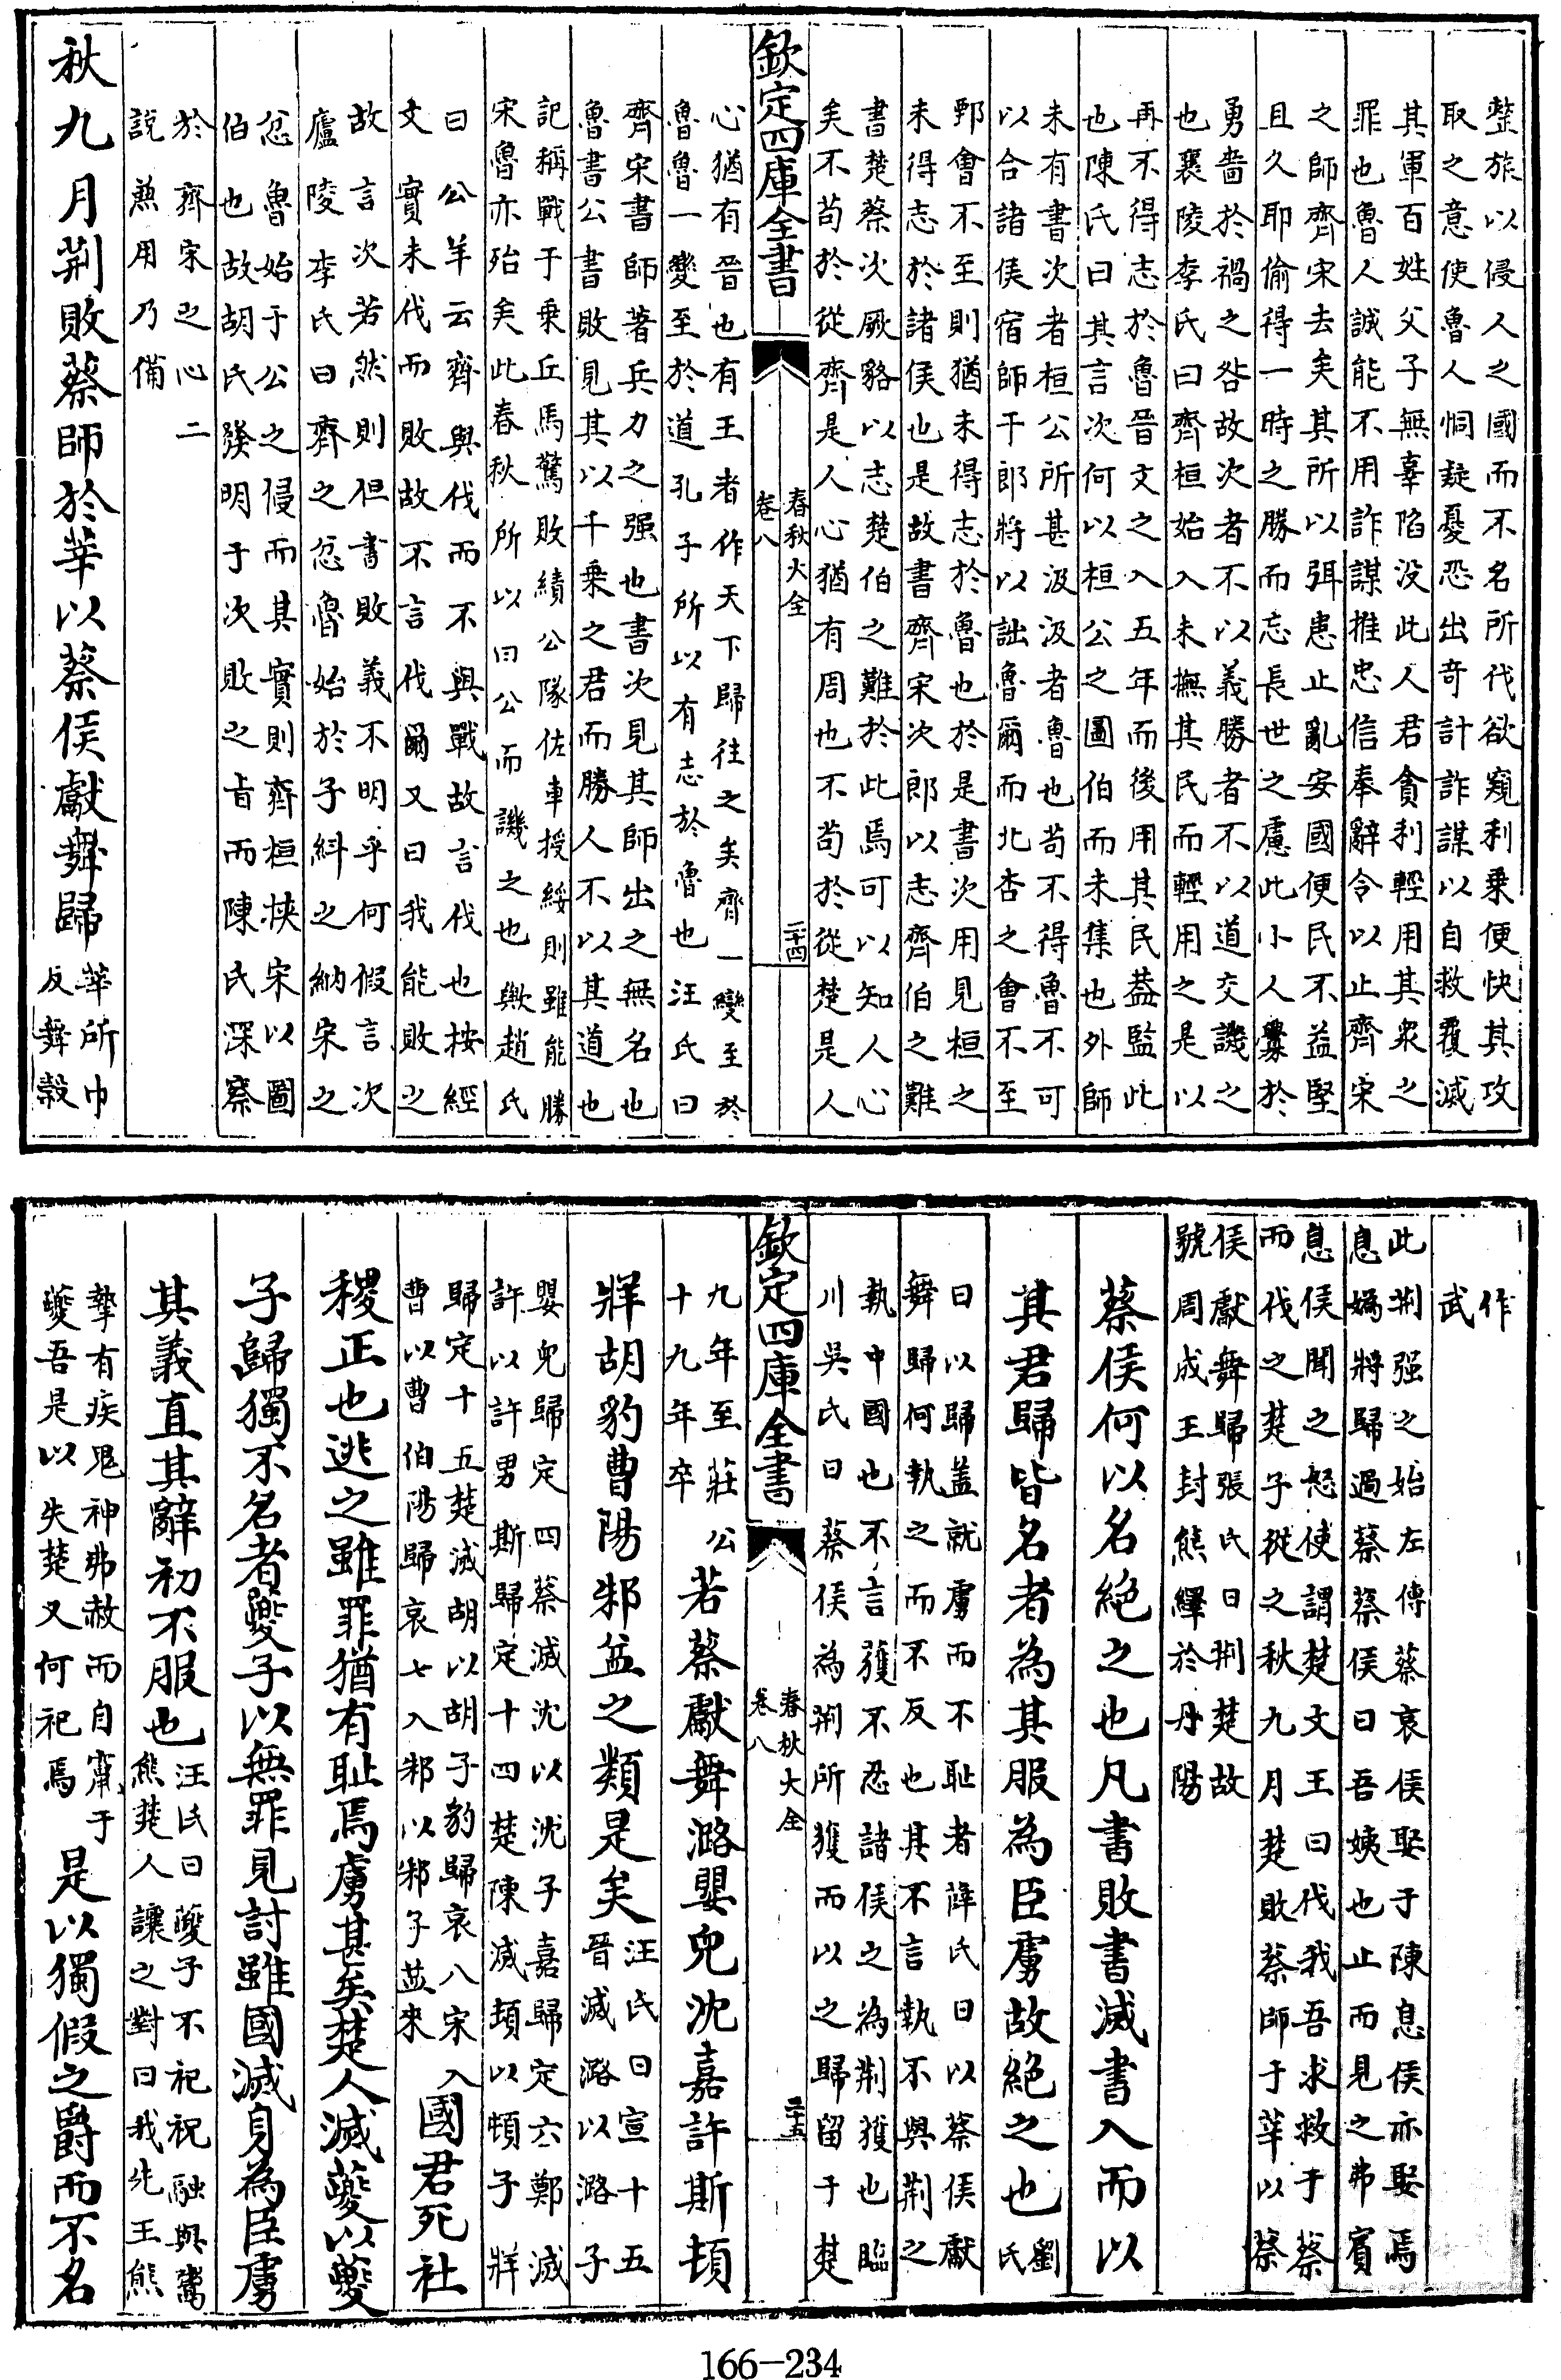 整旅以侵人之國而不名所伐欲窺利乗便快其攻
取之意使魯人恫疑憂恐出奇計詐謀以自救覆滅
其軍百姓父子無辜陷没此人君貪利輕用其衆之
罪也魯人誠能不用詐謀推忠信奉辭令以止齊宋
之師齊宋去矣其所以弭患止亂安國便民不益堅
且久耶偷得一時之勝而忘長世之慮此小人釁於
勇嗇於禍之咎故次者不以義勝者不以道交譏之
也襄陵李氏曰齊桓始入未撫其民而輕用之是以
再不得志於魯晉文之入五年而後用其民葢監此
也陳氏曰其言次何以桓公之圖伯而未集也外師
未有書次者桓公所甚汲汲者魯也苟不得魯不可
以合諸侯宿師于郎將以詘魯爾而北杏之會不至
鄄會不至則猶未得志於魯也於是書次用見桓之
未得志於諸侯也是故書齊宋次郎以志齊伯之難
書楚蔡次厥貉以志楚伯之難於此焉可以知人心
矣不苟於從齊是人心猶有周也不苟於從楚是人
欽定四庫全書
春秋大全
卷八
二十四
心猶有晉也有王者作天下歸往之矣齊一變至於
魯魯一變至於道孔子所以有志於魯也汪氏曰
齊宋書師著兵力之强也書次見其師出之無名也
魯書公書敗見其以千乗之君而勝人不以其道也
記稱戰于乗丘馬驚敗績公隊佐車授綏則雖能勝
宋魯亦殆矣此春秋所以曰公而譏之也歟趙氏
曰公羊云齊與伐而不與戰故言伐也按經
文實未伐而敗故不言伐爾又曰我能敗之
故言次若然則但書敗義不明乎何假言次
廬陵李氏曰齊之忿魯始於子糾之納宋之
忿魯始于公之侵而其實則齊桓挾宋以圖
伯也故胡氏發明于次敗之旨而陳氏深察
於齊宋之心二
說兼用乃備
秋九月荆敗蔡師於莘以蔡侯獻舞歸
莘所巾
反舞榖
作
武
此荆强之始左傳蔡哀侯娶于陳息侯亦娶焉
息嬀將歸過蔡蔡侯曰吾姨也止而見之弗賓
息侯聞之怒使謂楚文王曰伐我吾求救于蔡
而伐之楚子從之秋九月楚敗蔡師于莘以蔡
侯獻舞歸張氏曰荆楚故
號周成王封熊繹於丹陽
蔡侯何以名絶之也凡書敗書滅書入而以
其君歸皆名者為其服為臣虜故絶之也
劉
氏
曰以歸蓋就虜而不恥者薛氏曰以蔡侯獻
舞歸何執之而不反也其不言執不與荆之
執中國也不言獲不忍諸侯之為荆獲也臨
川吳氏曰蔡侯為荆所獲而以之歸留于楚
欽定四庫全書
春秋大全
卷八
二十五
九年至莊公
十九年卒
若蔡獻舞潞嬰兒沈嘉許斯頓
牂胡豹曹陽邾益之類是矣
汪氏曰宣十五
晉滅潞以潞子
嬰兒歸定四蔡滅沈以沈子嘉歸定六鄭滅
許以許男斯歸定十四楚陳滅頓以頓子牂
歸定十五楚滅胡以胡子豹歸哀八宋入
曹以曹伯陽歸哀七入邾以邾子益來
國君死社
稷正也逃之雖罪猶有恥焉虜甚矣楚人滅夔以夔
子歸獨不名者夔子以無罪見討雖國滅身為臣虜
其義直其辭初不服也
汪氏曰夔子不祀祝融與鬻
熊楚人讓之對曰我先王熊
摯有疾鬼神弗赦而自竄于
夔吾是以失楚又何祀焉
是以獨假之爵而不名
166—234